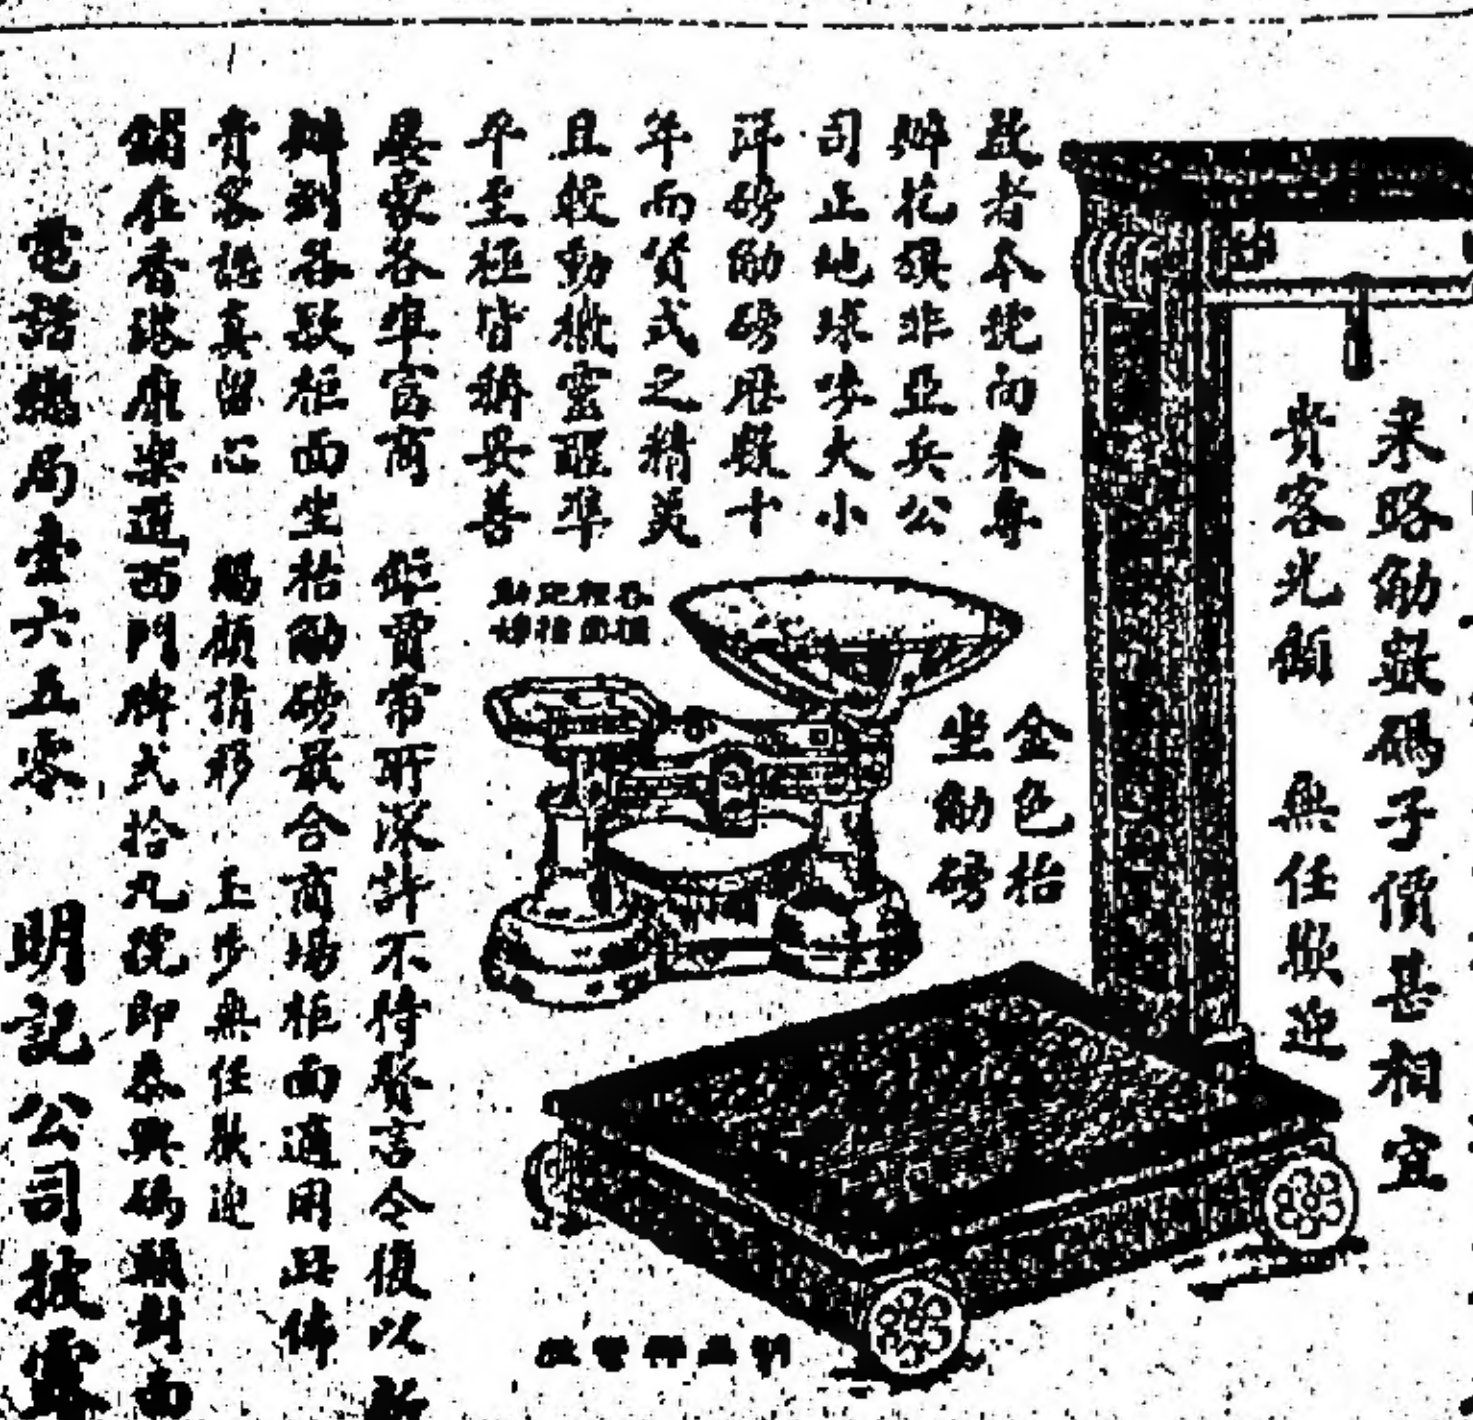 来路觔數碼子價甚相宜
貴客光顧 無任歡迎
啟者本號向来專
辦花旗非亞兵公
司正地球嘜大小
洋磅觔磅歷數十
年而貨式之精美
且較動機靈醒準
平至極皆稱妥善
金色枱
坐觔磅
屡蒙各埠富商 鉅賈常所深許不待贅言今復以新
辦到各欵柜面坐枱觔磅最合商場柜面適用此佈
貴客認真留心 賜顧請移 玉步無任歡迎
鋪在香港康樂道西門牌弍拾九號即泰興碼頭對面
電話總局壹六五零 明記公司披露